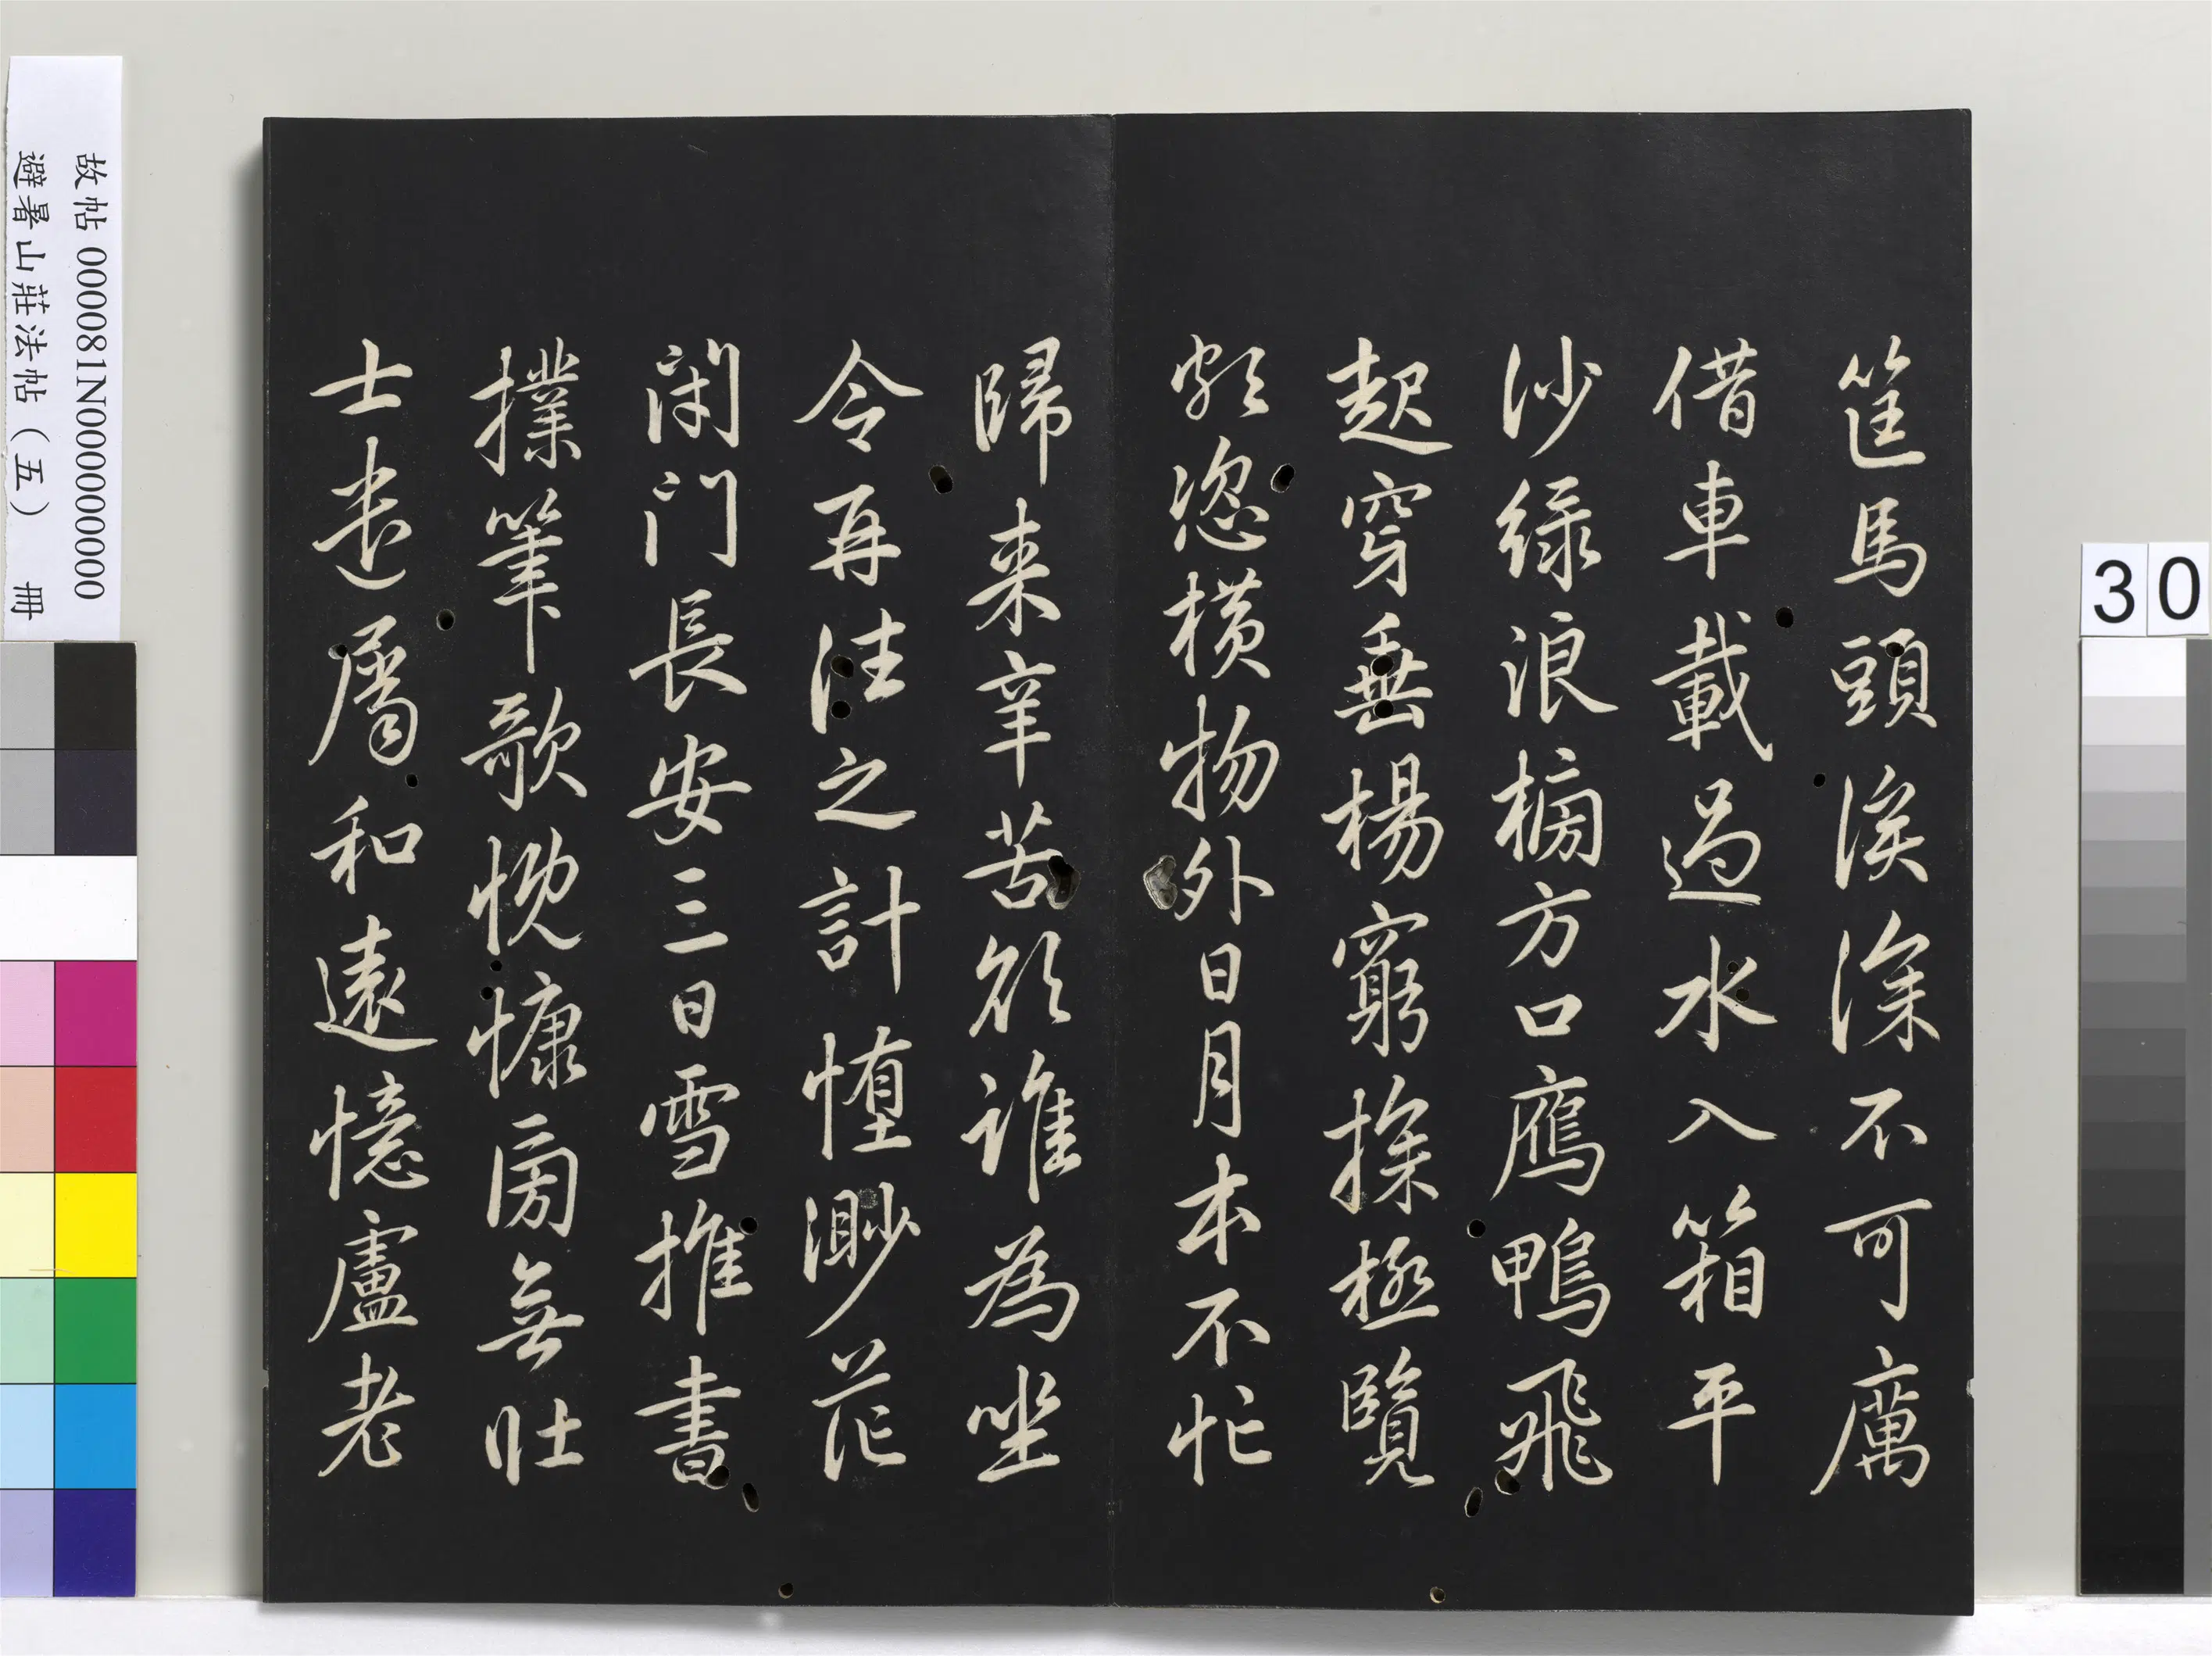 筐馬頭溪深不可厲
借車載過水入箱平
沙綠浪榜方口鴈鴨飛
起穿垂楊窮探極覽
頗恣橫物外日月本不忙
歸來辛苦欲誰為坐
令再往之計憜渺茫
閉門長安三日雪推書
撲筆歌慨慷旁無壯
士遣屬和遠憶盧老
故帖 000081N000000000
避暑山莊法帖（五） 冊
30